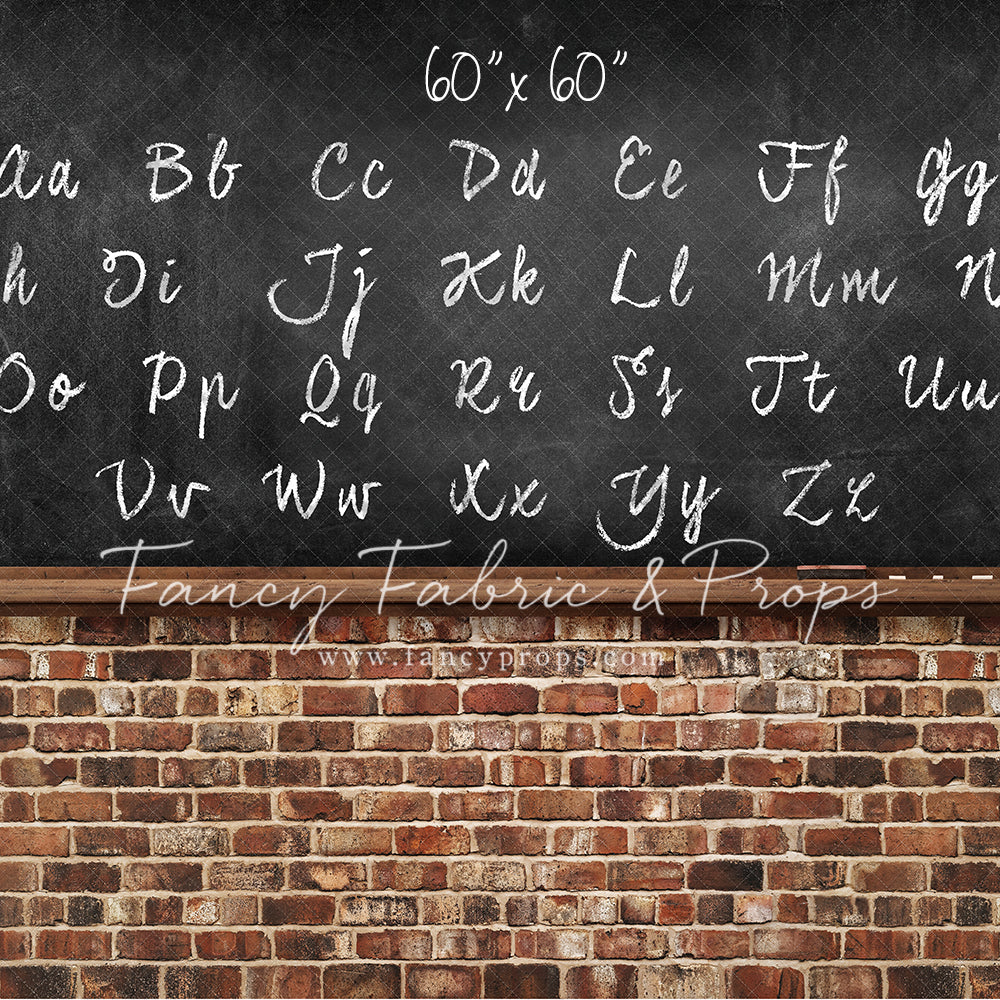 60" x 60"
Aa Bb Cc Dd Ee Ff Gg
h Ii Jj Kk Ll Mm N
Oo Pp Qq Rr Ss Tt Uu
Vv Ww Xx Yy Zz
Fancy Fabric & Props
www.fancyprops.com